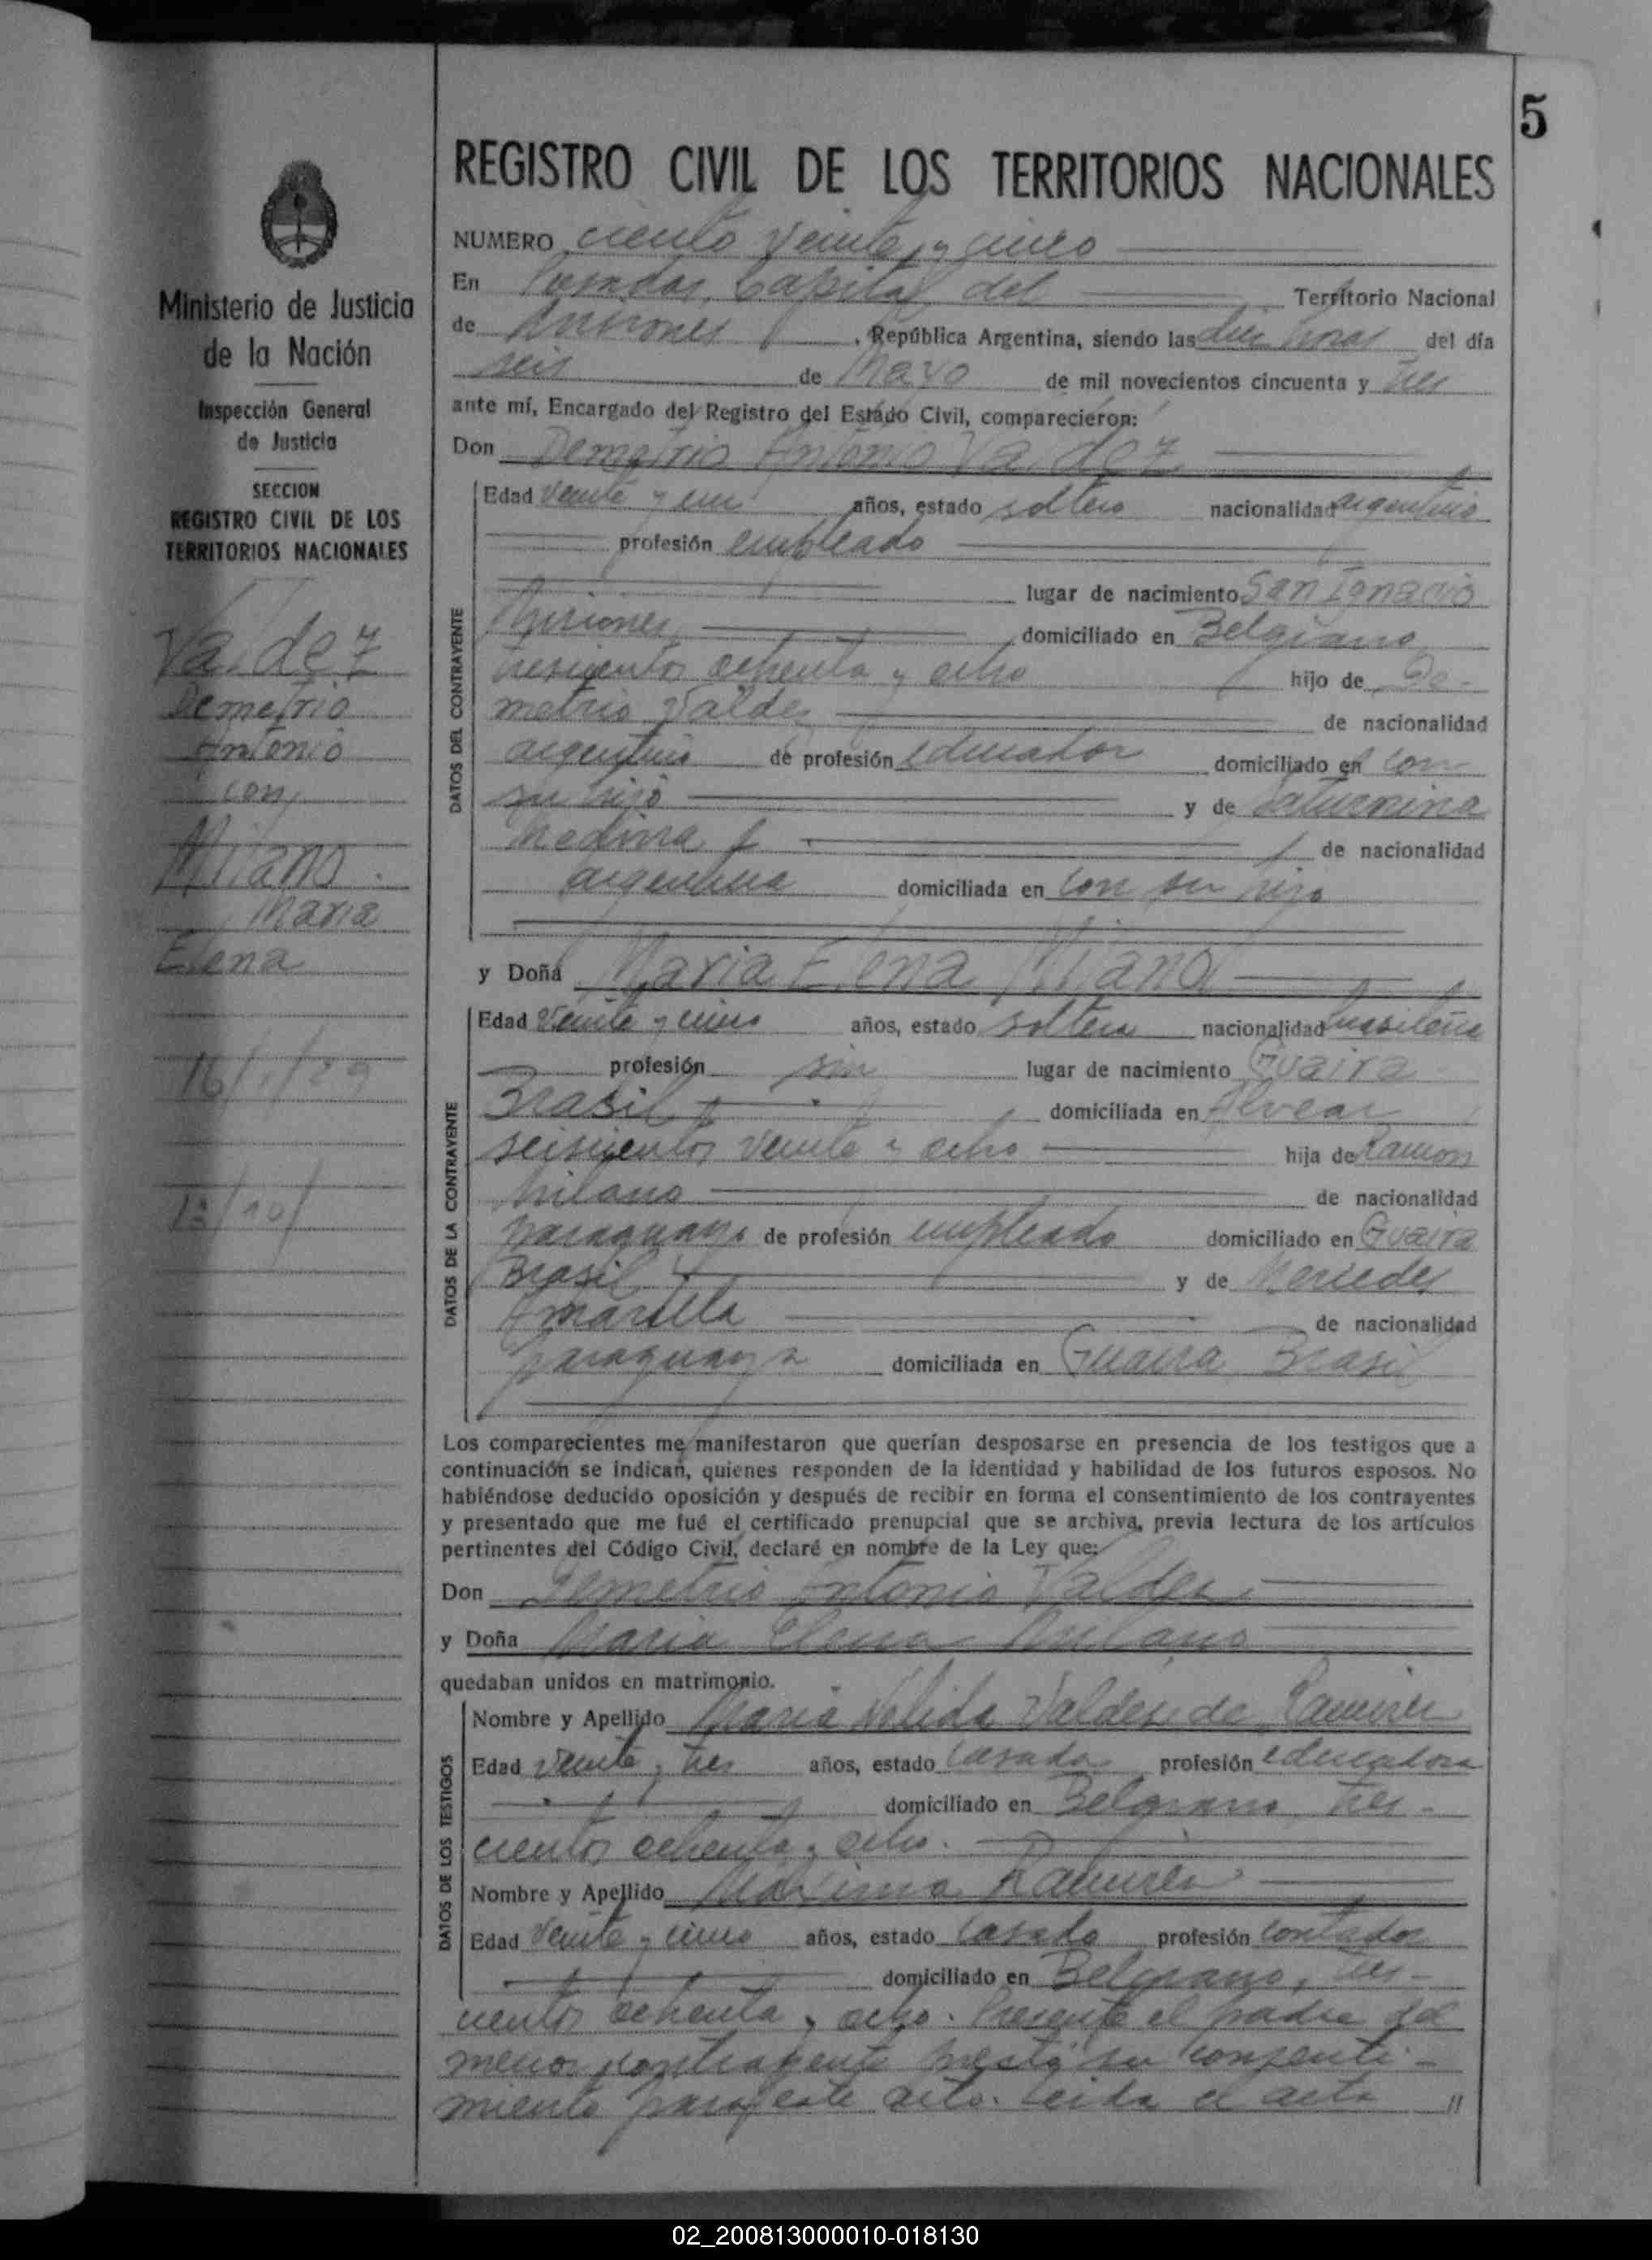 5
REGISTRO CIVIL DE LOS TERRITORIOS NACIONALES
Ministerio de Justicia
de la Nación
Inspección General
de Justicia
SECCION
REGISTRO CIVIL DE LOS
TERRITORIOS NACIONALES
Valdez
Demetrio
Antonio
con
Milano
Maria
Elena
16/1/29
13/10/
NUMERO ciento veinte y cinco
En Posadas, Capital del Territorio Nacional
de Misiones, República Argentina, siendo las diez horas del día
seis de Mayo de mil novecientos cincuenta y tres
ante mí, Encargado del Registro del Estado Civil, comparecieron:
Don Demetrio Antonio Valdez
DATOS DEL CONTRAYENTE
Edad veinte y un años, estado soltero nacionalidad argentino
profesión empleado
lugar de nacimiento San Ignacio
Misiones, domiciliado en Belgrano
trescientos ochenta y ocho hijo de De-
metrio Valdez de nacionalidad
argentino de profesión educador domiciliado en con
su hijo y de Saturnina
Medina de nacionalidad
argentina domiciliada en con su hijo
y Doña Maria Elena Milano
DATOS DE LA CONTRAYENTE
Edad veinte y cinco años, estado soltera nacionalidad brasileña
profesión sin lugar de nacimiento Guaira
Brasil, domiciliada en Alvear
seiscientos veinte y ocho hija de Ramon
Milano de nacionalidad
paraguayo de profesión empleado domiciliado en Guaira
Brasil y de Mercedes
Amarilla de nacionalidad
paraguaya domiciliada en Guaira Brasil
Los comparecientes me manifestaron que querían desposarse en presencia de los testigos que a
continuación se indican, quienes responden de la identidad y habilidad de los futuros esposos. No
habiéndose deducido oposición y después de recibir en forma el consentimiento de los contrayentes
y presentado que me fué el certificado prenupcial que se archiva, previa lectura de los artículos
pertinentes del Código Civil, declaré en nombre de la Ley que:
Don Demetrio Antonio Valdez
y Doña Maria Elena Milano
quedaban unidos en matrimonio.
DATOS DE LOS TESTIGOS
Nombre y Apellido Maria Nelida Valdez de Ramirez
Edad veinte y tres años, estado casada profesión educadora
domiciliado en Belgrano tres-
cientos ochenta y ocho.
Nombre y Apellido Maximo Ramirez
Edad veinte y cinco años, estado casado profesión contador
domiciliado en Belgrano, tres-
cientos ochenta y ocho. Presente el padre del
menor contrayente prestó su consenti-
miento para este acto. Leida el acta "
02_200813000010-018130